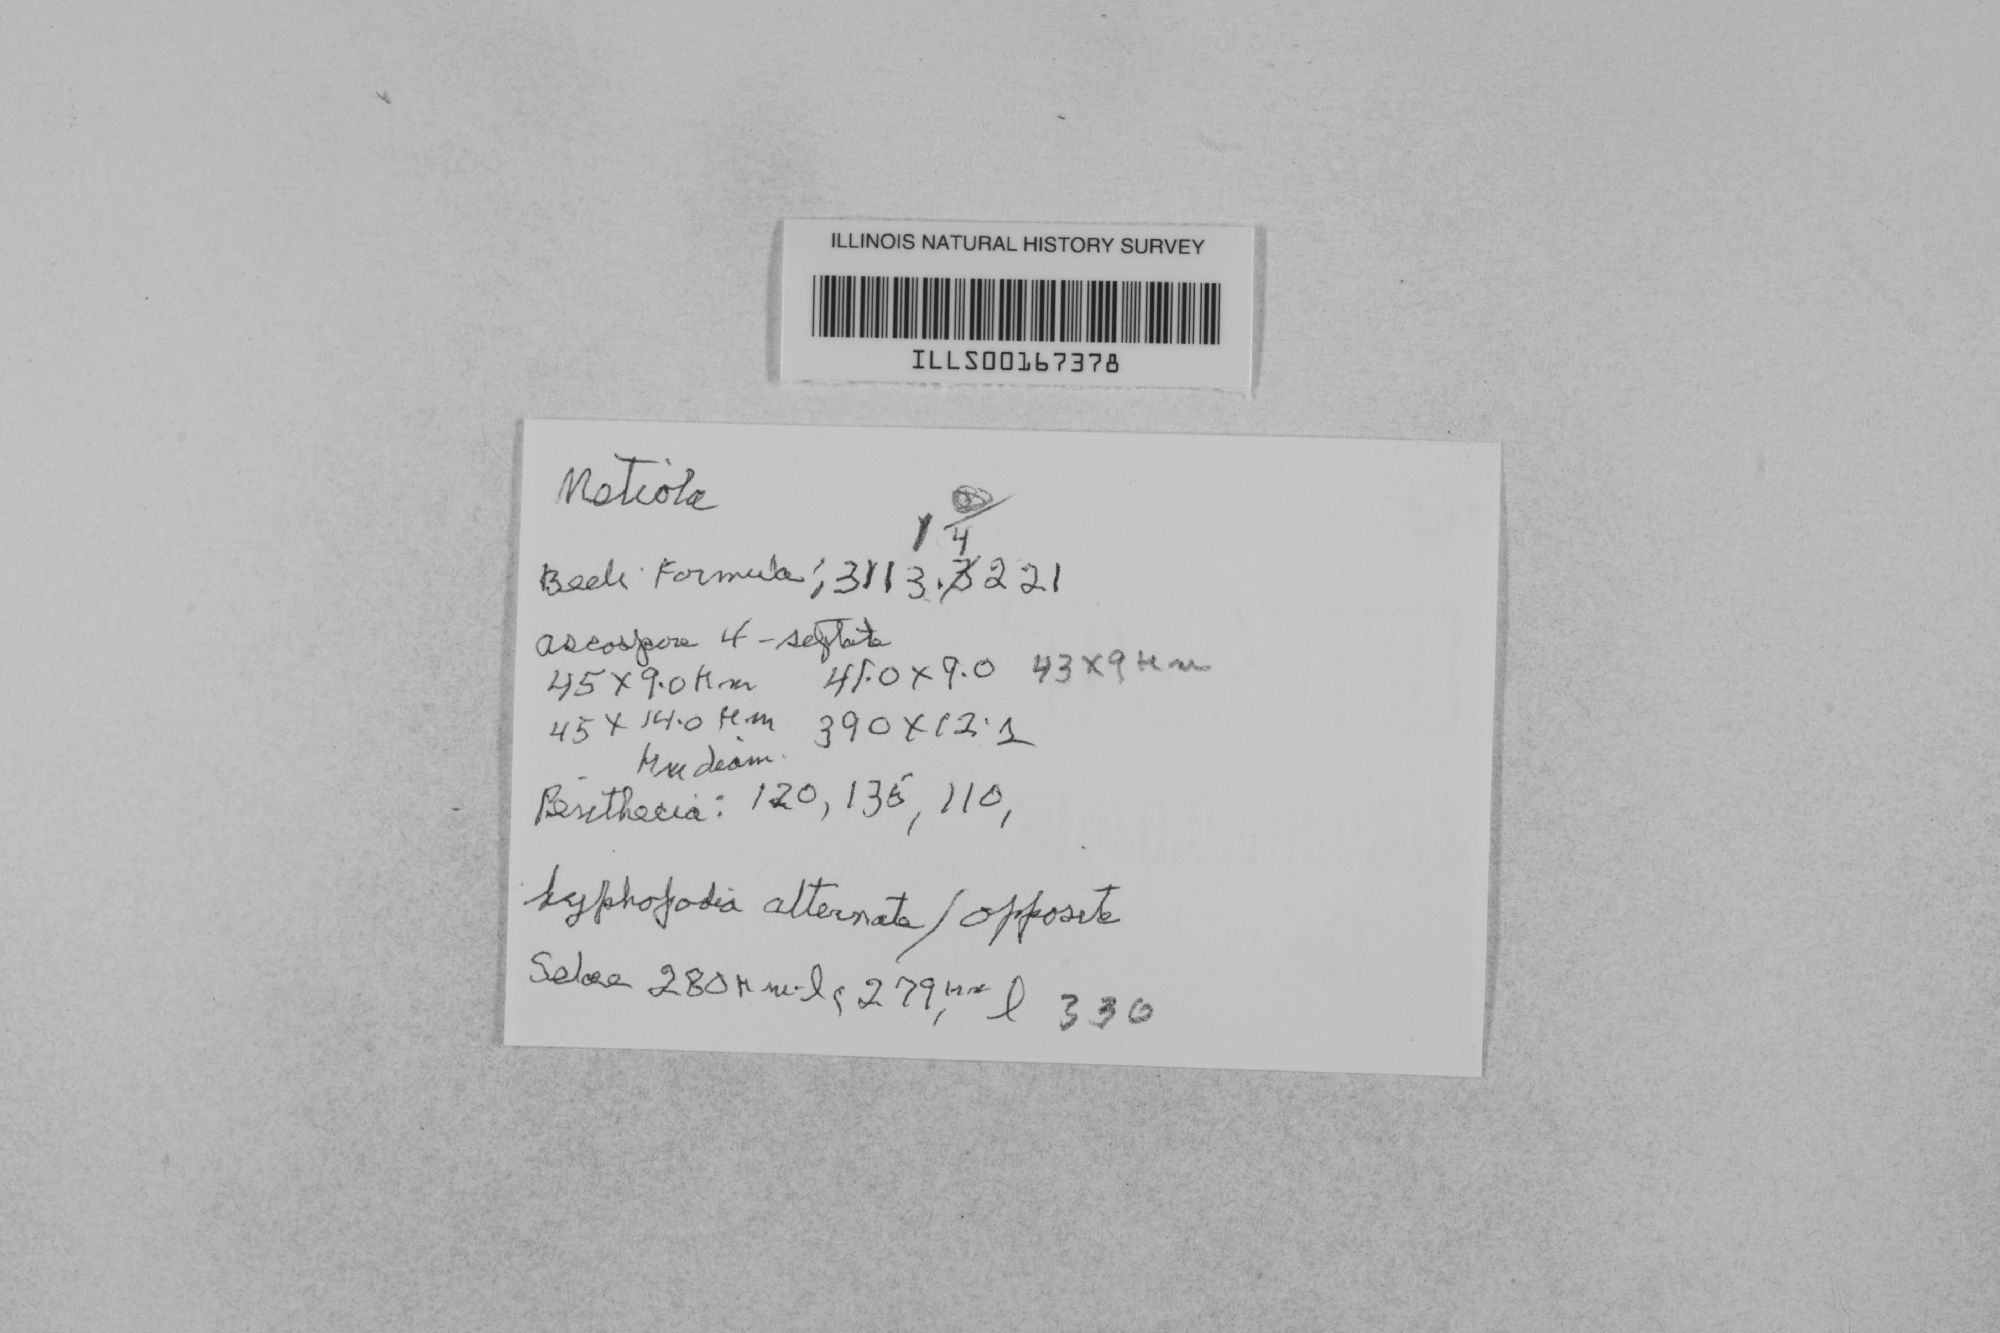 ILLINOIS NATURAL HISTORY SURVEY
ILLS00167378
Meliola
1 4
Beeli Formula; 3113.3221
ascospore 4-septate
45 x 9.0 μm 41.0 x 9.0 43 x 9 μm
45 x 14.0 μm 390 x 12.1
μm diam.
Perithecia: 120, 135, 110,
hyphopodia alternate/opposite
Setae 280 μm l, 279, μm l 330